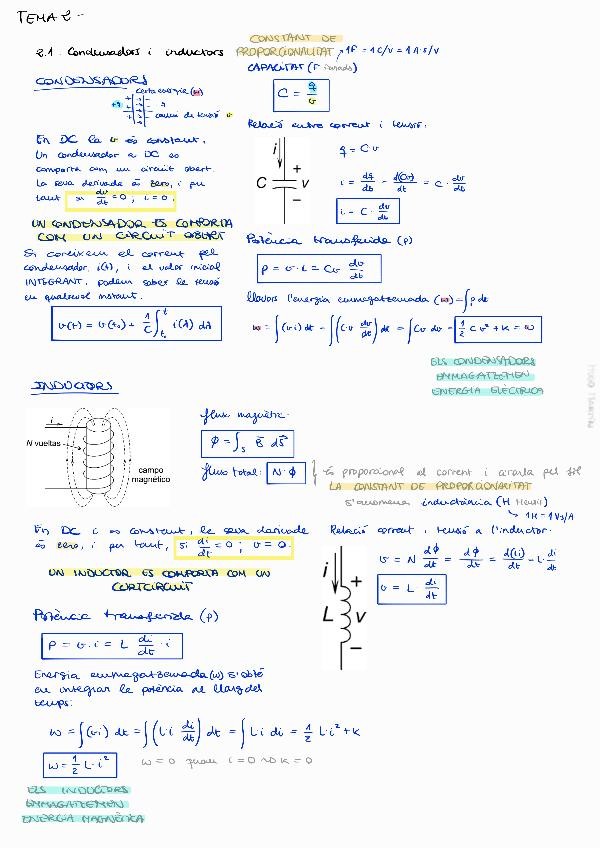 TEMA 2 -
2.1. Condensadors i inductors
CONSTANT DE
PROPORCIONALITAT
1F = 1C/V = 1A·s/V
CAPACITAT (F farads)
C = q/v
CONDENSADORS
camp de tensió v
En DC la v és constant.
Un condensador a DC es
comporta com un circuit obert.
La seva derivada és zero, i per
tant si dv/dt = 0 ; i = 0.
UN CONDENSADOR ES COMPORTA
COM UN CIRCUIT OBERT
Si coneixem el corrent pel
condensador i(t), i el valor inicial
INTEGRANT, podem saber la tensió
en qualsevol instant.
v(t) = v(t₀) + 1/C ∫ i(λ) dλ
Relació entre corrent i tensió:
i
C
+
v
−
q = C v
i = dq/dt = d(Cv)/dt = C · dv/dt
i = C · dv/dt
Potència transferida (p)
p = v · i = Cv dv/dt
Llavors l'energia emmagatzemada (w) = ∫ p dt
w = ∫(v·i) dt = ∫(C·v dv/dt) dt = ∫Cv dv = 1/2 C v² + K = w
ELS CONDENSADORS
EMMAGATZEMEN
ENERGIA ELÈCTRICA
INDUCTORS
i
N vueltas
campo
magnético
flux magnètic
ϕ = ∫s B dS
flux total: N·ϕ
és proporcional al corrent i circula pel fil
LA CONSTANT DE PROPORCIONALITAT
s'anomena inductància (H Henri)
1H = 1Vs/A
En DC i és constant, la seva derivada
és zero, i per tant, si di/dt = 0 ; v = 0.
UN INDUCTOR ES COMPORTA COM UN
CURTCIRCUIT
Relació corrent i tensió a l'inductor.
i
L
+
v
−
v = N dϕ/dt = dϕ/dt = d(Li)/dt = L·di/dt
v = L di/dt
Potència transferida (p)
p = v·i = L di/dt · i
Energia emmagatzemada (w) s'obté
en integrar la potència al llarg del
temps:
w = ∫(v·i) dt = ∫(L·i di/dt) dt = ∫L·i di = 1/2 L·i² + K
w = 1/2 L·i²
w = 0 quan i = 0 → K = 0
ELS INDUCTORS
EMMAGATZEMEN
ENERGIA MAGNÈTICA